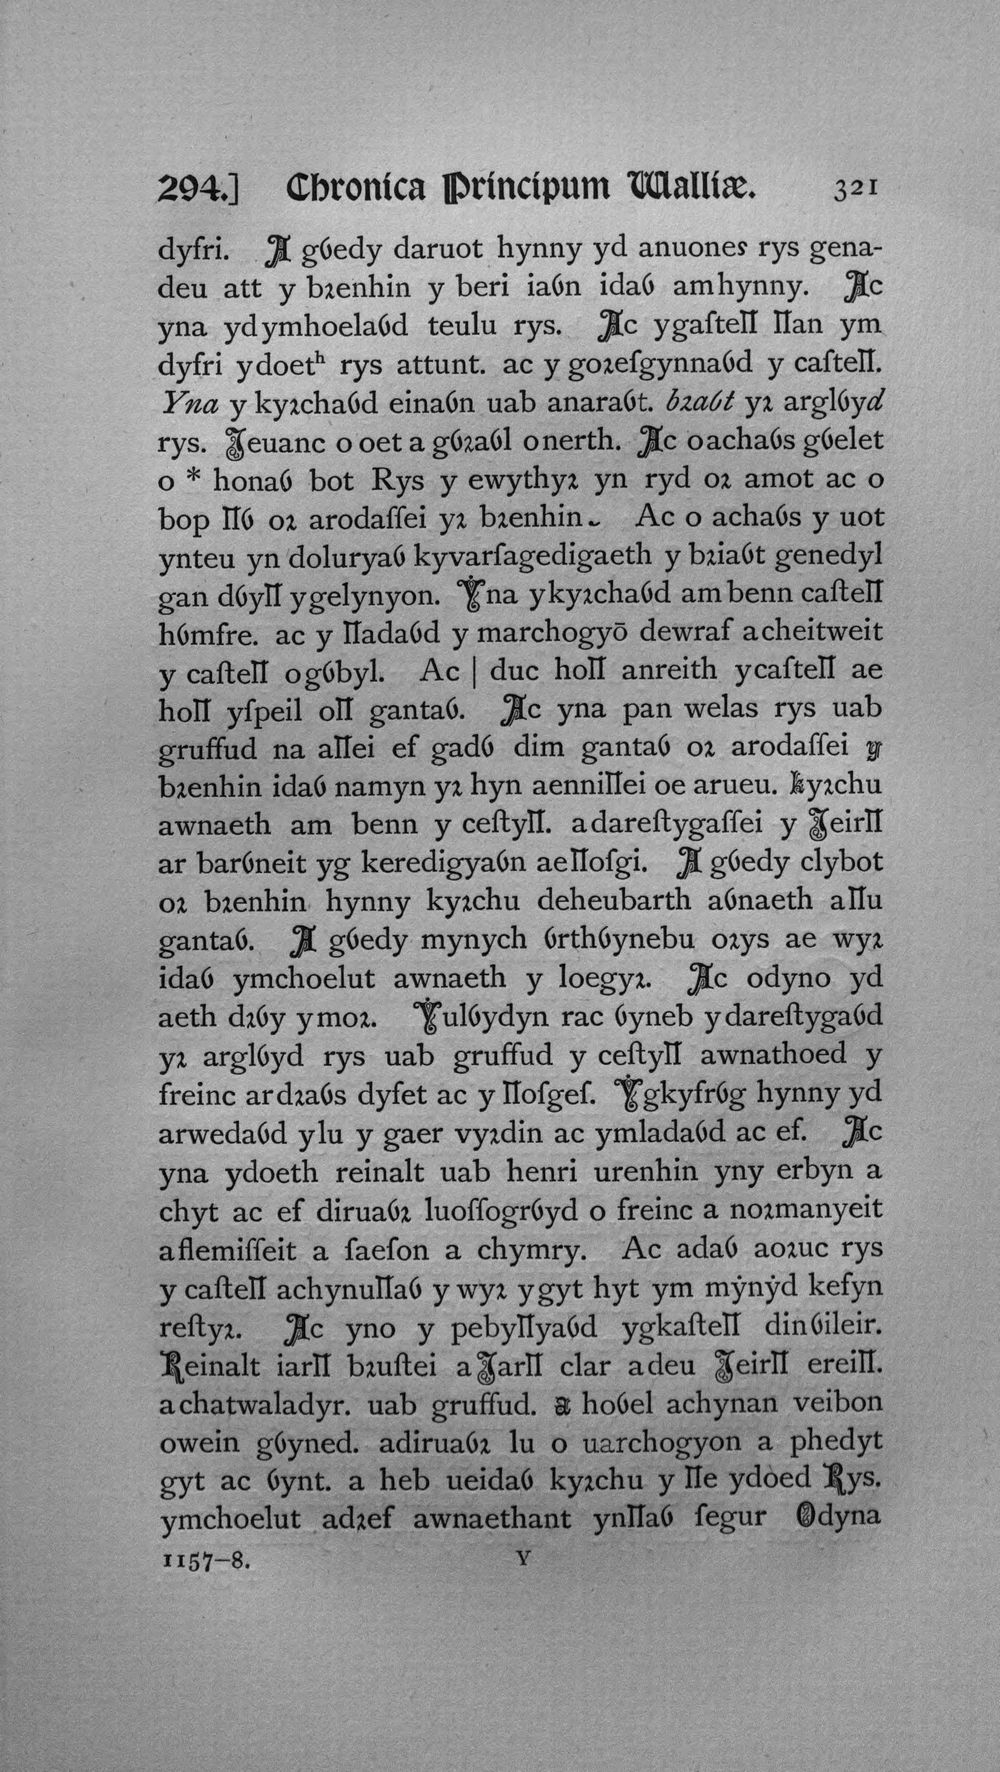 294.] Chronica Principum Walliæ. 321
dyfri. A gỽedy daruot hynny yd anuones rys gena-
deu att y bꝛenhin y beri iaỽn idaỽ amhynny. Ac
yna ydymhoelaỽd teulu rys. Ac ygaſteỻ ỻan ym
dyfri ydoetʰ rys attunt. ac y goꝛeſgynnaỽd y caſteỻ.
Yna y kyꝛchaỽd einaỽn uab anaraỽt. bꝛaỽt yꝛ arglỽyd
rys. Jeuanc o oet a gỽꝛaỽl onerth. Ac oachaỽs gỽelet
o * honaỽ bot Rys y ewythyꝛ yn ryd oꝛ amot ac o
bop ỻỽ oꝛ arodaſſei yꝛ bꝛenhin. Ac o achaỽs y uot
ynteu yn doluryaỽ kyvarſagedigaeth y bꝛiaỽt genedyl
gan dỽyỻ ygelynyon. Yna ykyꝛchaỽd ambenn caſteỻ
hỽmfre. ac y ỻadaỽd y marchogyō dewraf acheitweit
y caſteỻ ogỽbyl. Ac | duc hoỻ anreith ycaſteỻ ae
hoỻ yſpeil oỻ gantaỽ. Ac yna pan welas rys uab
gruffud na aỻei ef gadỽ dim gantaỽ oꝛ arodaſſei y
bꝛenhin idaỽ namyn yꝛ hyn aenniỻei oe arueu. kyꝛchu
awnaeth am benn y ceſtyỻ. adareſtygaſſei y Jeirỻ
ar barỽneit yg keredigyaỽn aeỻoſgi. A gỽedy clybot
oꝛ bꝛenhin hynny kyꝛchu deheubarth aỽnaeth aỻu
gantaỽ. A gỽedy mynych ỽrthỽynebu oꝛys ae wyꝛ
idaỽ ymchoelut awnaeth y loegyꝛ. Ac odyno yd
aeth dꝛỽy ymoꝛ. Yulỽydyn rac ỽyneb ydareſtygaỽd
yꝛ arglỽyd rys uab gruffud y ceſtyỻ awnathoed y
freinc ardꝛaỽs dyfet ac y ỻoſgeſ. Ygkyfrỽg hynny yd
arwedaỽd ylu y gaer vyꝛdin ac ymladaỽd ac ef. Ac
yna ydoeth reinalt uab henri urenhin yny erbyn a
chyt ac ef diruaỽꝛ luoſſogrỽyd o freinc a noꝛmanyeit
aflemiſſeit a ſaeſon a chymry. Ac adaỽ aoꝛuc rys
y caſteỻ achynuỻaỽ y wyꝛ ygyt hyt ym mẏnẏd kefyn
reſtyꝛ. Ac yno y pebyỻyaỽd ygkaſteỻ dinỽileir.
Reinalt iarỻ bꝛuſtei a Jarỻ clar adeu Jeirỻ ereiỻ.
achatwaladyr. uab gruffud. a hoỽel achynan veibon
owein gỽyned. adiruaỽꝛ lu o uarchogyon a phedyt
gyt ac ỽynt. a heb ueidaỽ kyꝛchu y ỻe ydoed Rys.
ymchoelut adꝛef awnaethant ynỻaỽ ſegur Odyna
1157–8. Y